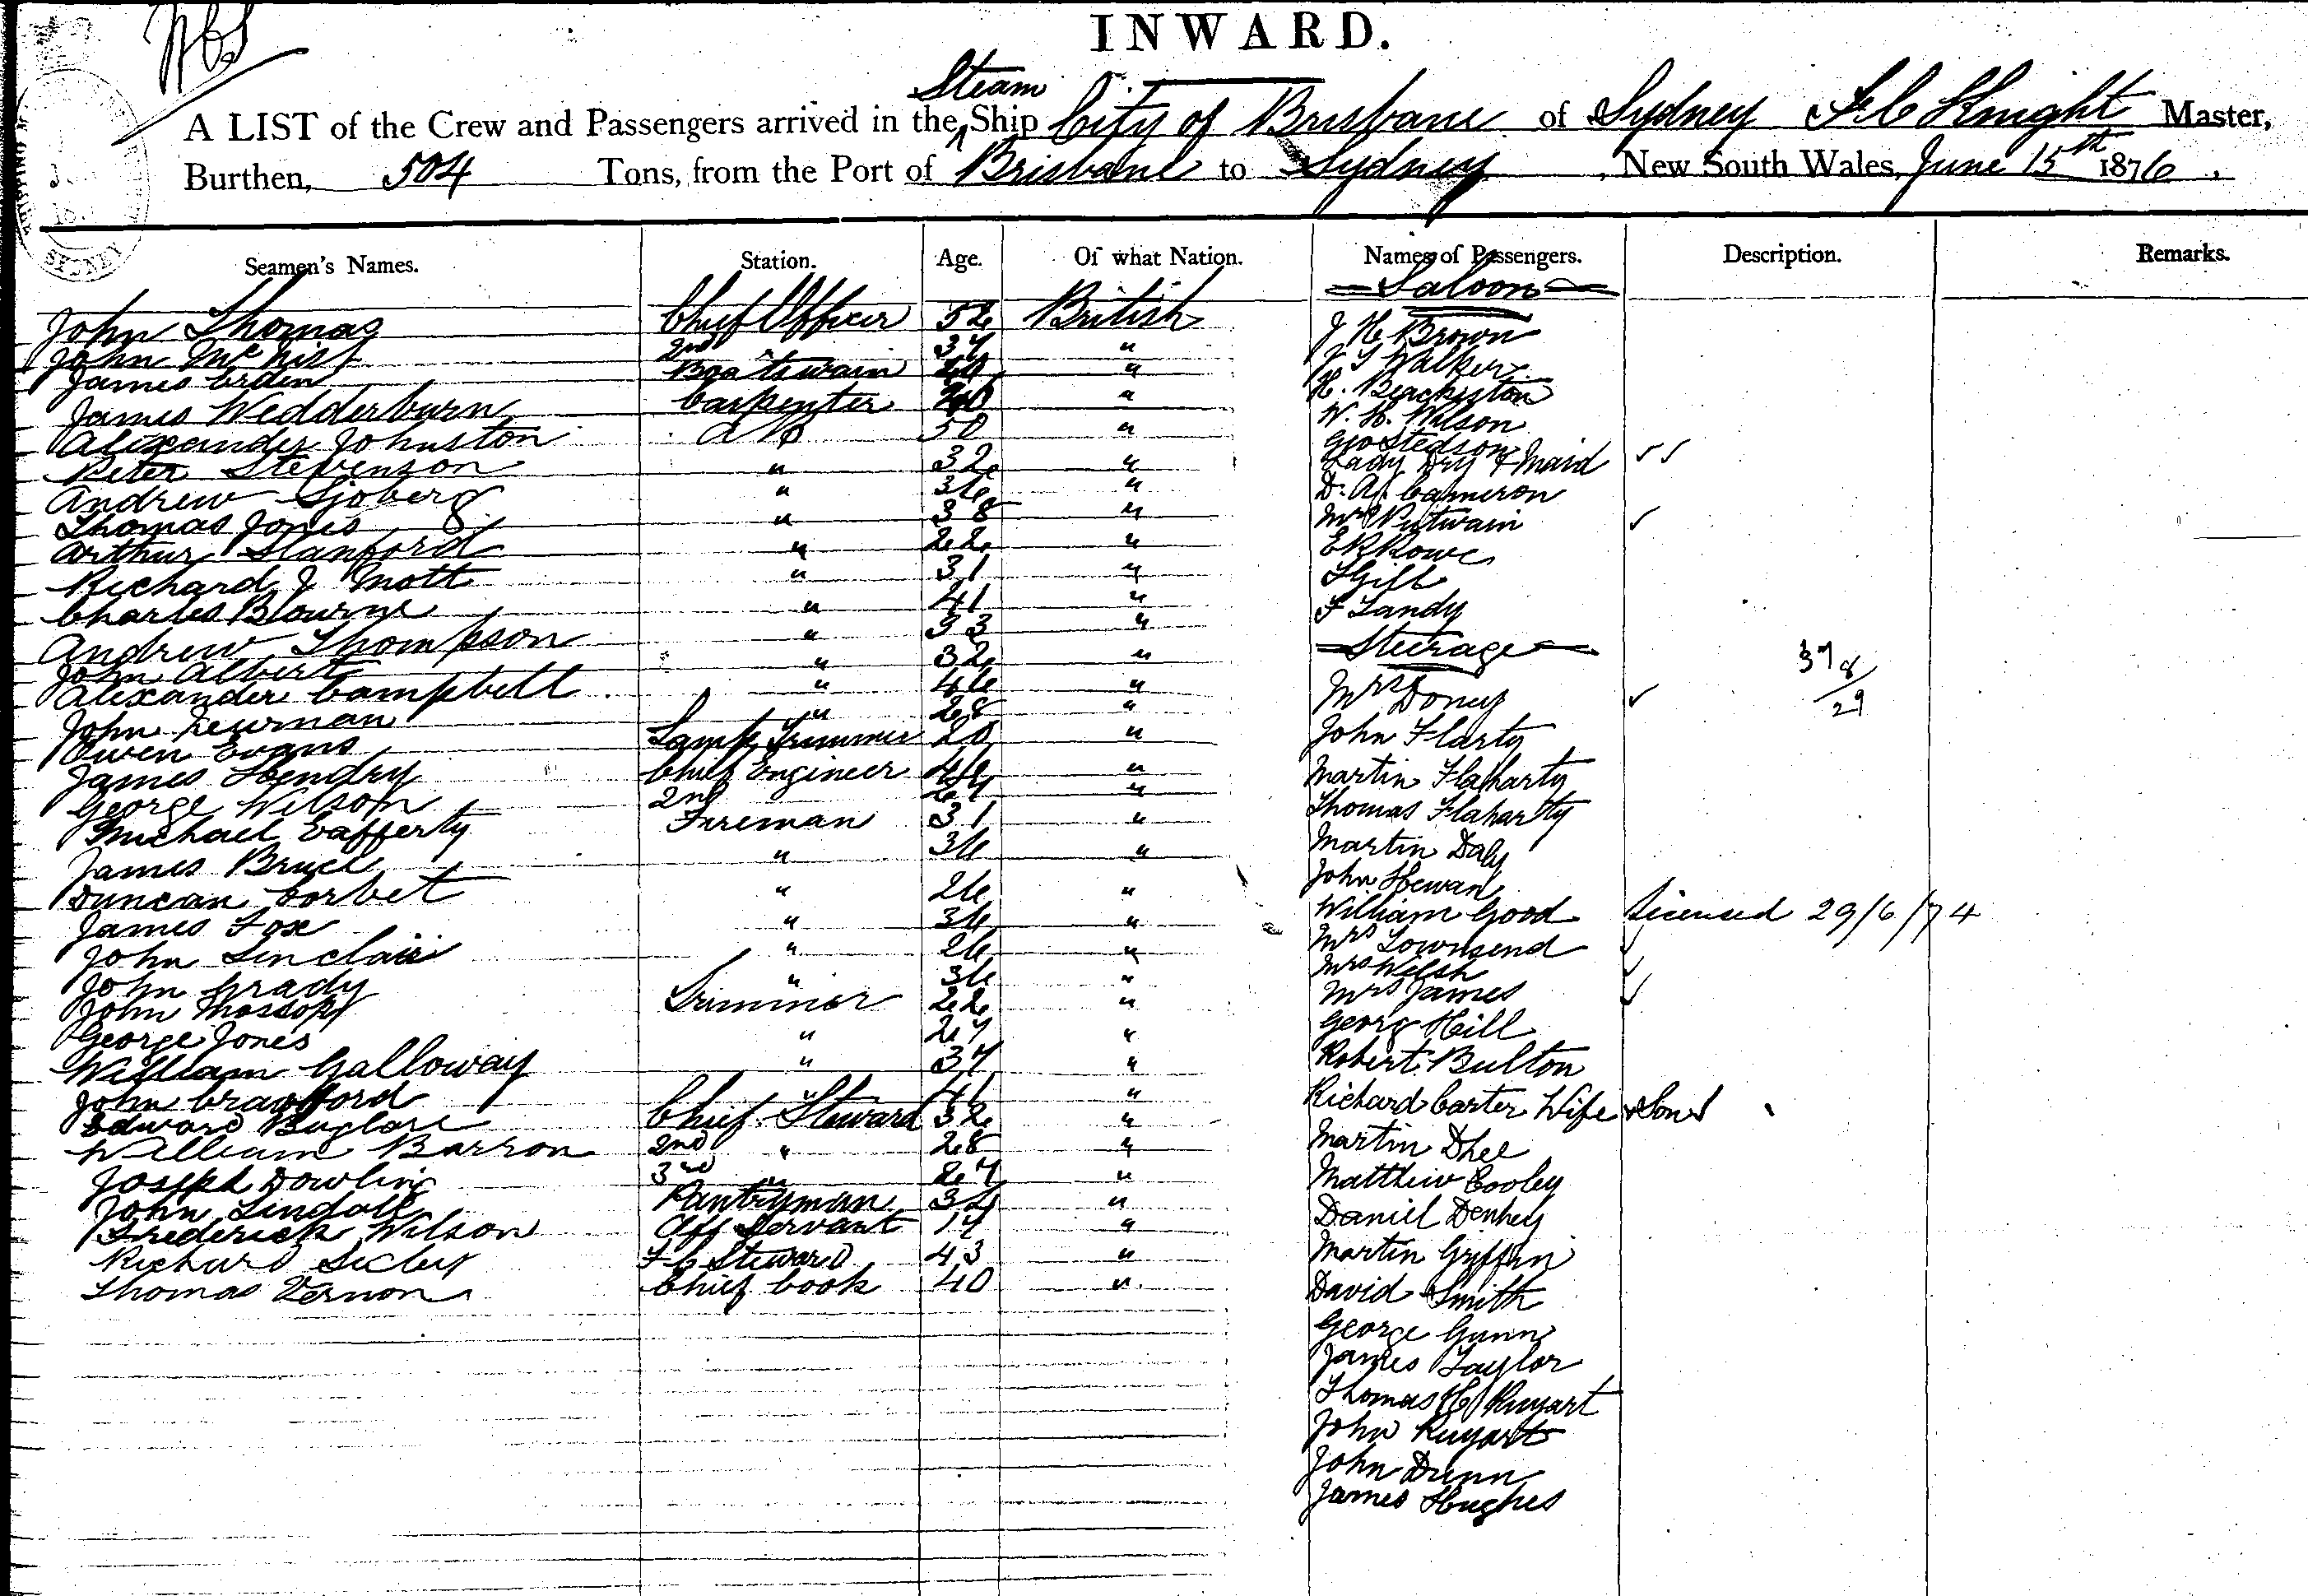 INWARD.
A LIST of the Crew and Passengers arrived in the Steam Ship City of Brisbane of Sydney F C Knight Master,
Burthen, 504 Tons, from the Port of Brisbane to Sydney, New South Wales, June 15th 1876,
Seamen's Names. Station. Age. Of what Nation. Names of Passengers. Description. Remarks.
Saloon
John Thomas Chief Officer 52 British J H Brown
John 2nd 37 " Walker
James Boatswain " H.
James Wedderburn Carpenter 40 " W. H. Wilson
Alexander Johnston A B 50 " Geo Stedson
Peter Stevenson " 32 " Lady Dry & Maid ✓✓
Andrew Sjoberg " 36 " D. Cameron
Thomas Jones " 38 " Mrs Putwain ✓
Arthur Stanford " 22 " E R Rowe
Richard J Mott " 31 " Gill
Charles Blourne " 41 " F Landy
Andrew Thompson " 33 " Steerage
John Albert " 32 "
Alexander Campbell " 46 " Mrs Doney ✓ 37 8/29
John Newman " 28 "
Owen Evans Lamp Trimmer 20 " John Flarty
James Hendry Chief Engineer " Martin Flaharty
George Wilson 2nd " Thomas Flaharty
Michael Cafferty Fireman 31 "
James Bruce " 36 " Martin Daly
Duncan Corbet " 26 " John Hewan
James Fox " 36 " William Good Licensed 29/6/74
John Sinclair " 26 " Mrs Townsend ✓
John Grady " 36 " Mrs Welsh ✓
John Mossop Trimmer 22 " Mrs James ✓
George Jones " 27 " Georg Hill
William Galloway " 37 " Robert Bulton
John Crawford " 41 " Richard Carter Wife & Son
Edward Buglare Chief Steward 32 "
William Barron 2nd " 28 " Martin Dhee
Joseph Dowling 3rd " 27 " Matthew Cooley
John Pantryman " Daniel Denhey
Frederick Wilson Off Servant 17 "
Richard F C Steward 43 " Martin Griffin
Thomas Vernon Chief Cook 40 " David Smith
George Gunn
James Taylor
Thomas H Rugart
John Rugart
John Dunn
James Hughes